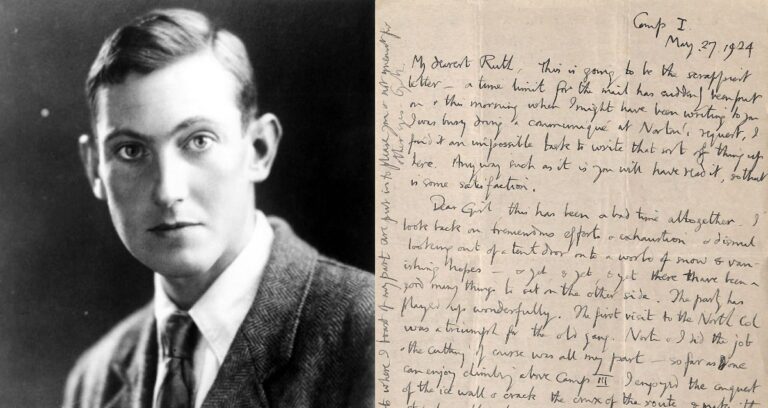 Camp I.
May. 27. 1924
My dearest Ruth, This is going to be the scrappiest
letter – a time limit for the mail has suddenly been put
on & this morning when I might have been writing to you
I was busy doing a communiqué at Norton's request, I
find it an impossible task to write that sort of thing up
here. Anyway such as it is you will have read it, so that
is some satisfaction.
Dear Girl this has been a bad time altogether I
look back on tremendous effort & exhaustion & dismal
looking out of a tent door onto a world of snow & van-
ishing hopes – & yet & yet & yet there have been a
good many things to set on the other side. The party has
played up wonderfully. The first visit to the North Col
was a triumph for the old gang. Norton & I did the job
& the cutting of course was all my part – so far as one
can enjoy climbing above Camp III I enjoyed the conquest
of the ice wall & crack the crux of the route & making the
to where I boast of my part are put in to please you & not meant for
other eyes